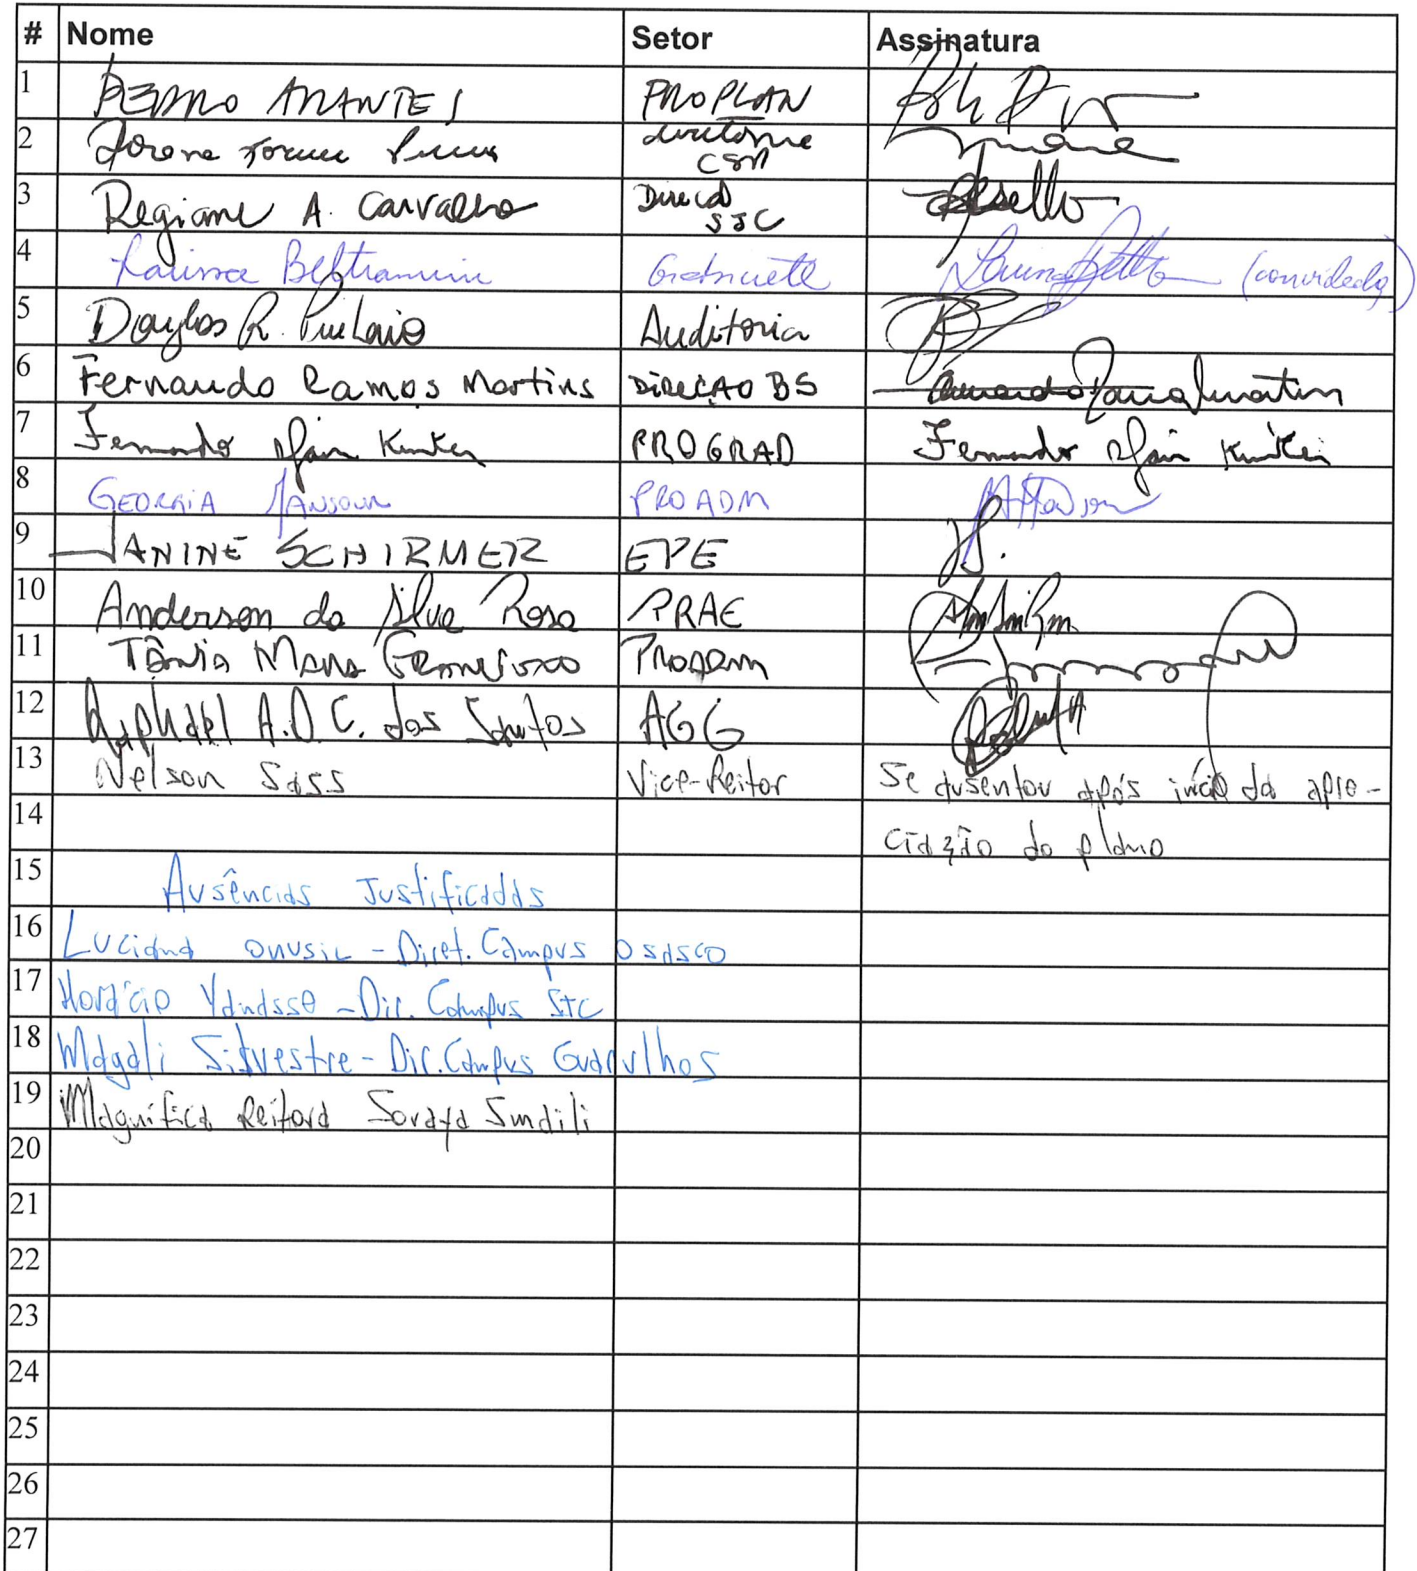 # Nome Setor Assinatura
1 PEDRO ARANTES PROPLAN
2 diretoria
CSP
3 Regiane A. Carvalho Direção
SJC
4 Larissa Beltramini Gabinete (convidada)
5 Douglas R. Auditoria
6 Fernando Ramos Martins DIREÇÃO BS
7 Fernando PROGRAD Fernando
8 GEORGIA MANSOUR PROADM
9 JANINE SCHIRMER EPE
10 Anderson da Silva Rosa PRAE
11 Tânia Mara PROADM
12 Raphael A.D.C. dos Santos AGG
13 Nelson Sass Vice-Reitor Se ausentou após início da apre-
14 ciação do plano
15 Ausências Justificadas
16 Luciana Onusic - Diret. Campus Osasco
17 Horácio Yanasse - Dir. Campus SJC
18 Magali Silvestre - Dir. Campus Guarulhos
19 Magnífica Reitora Soraya Smaili
20
21
22
23
24
25
26
27